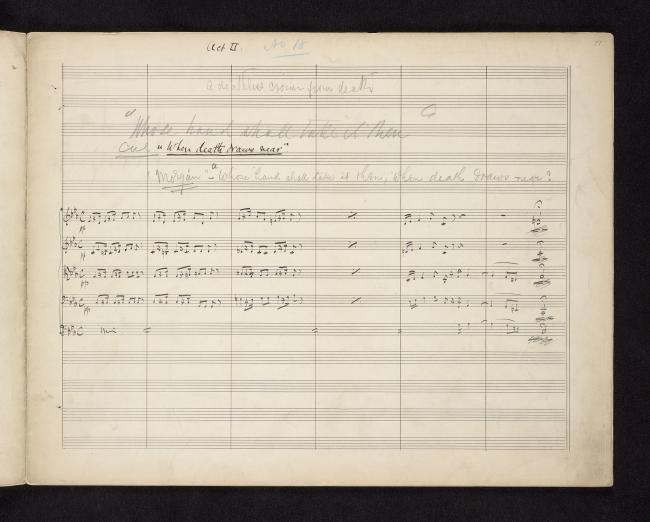 Act II. No 18
a deathless crown from death
"Whose hand shall take it then
Cue "When death draws near"
Morgan "Whose hand shall take it then, when death draws near?
pp
pp
pp
pp